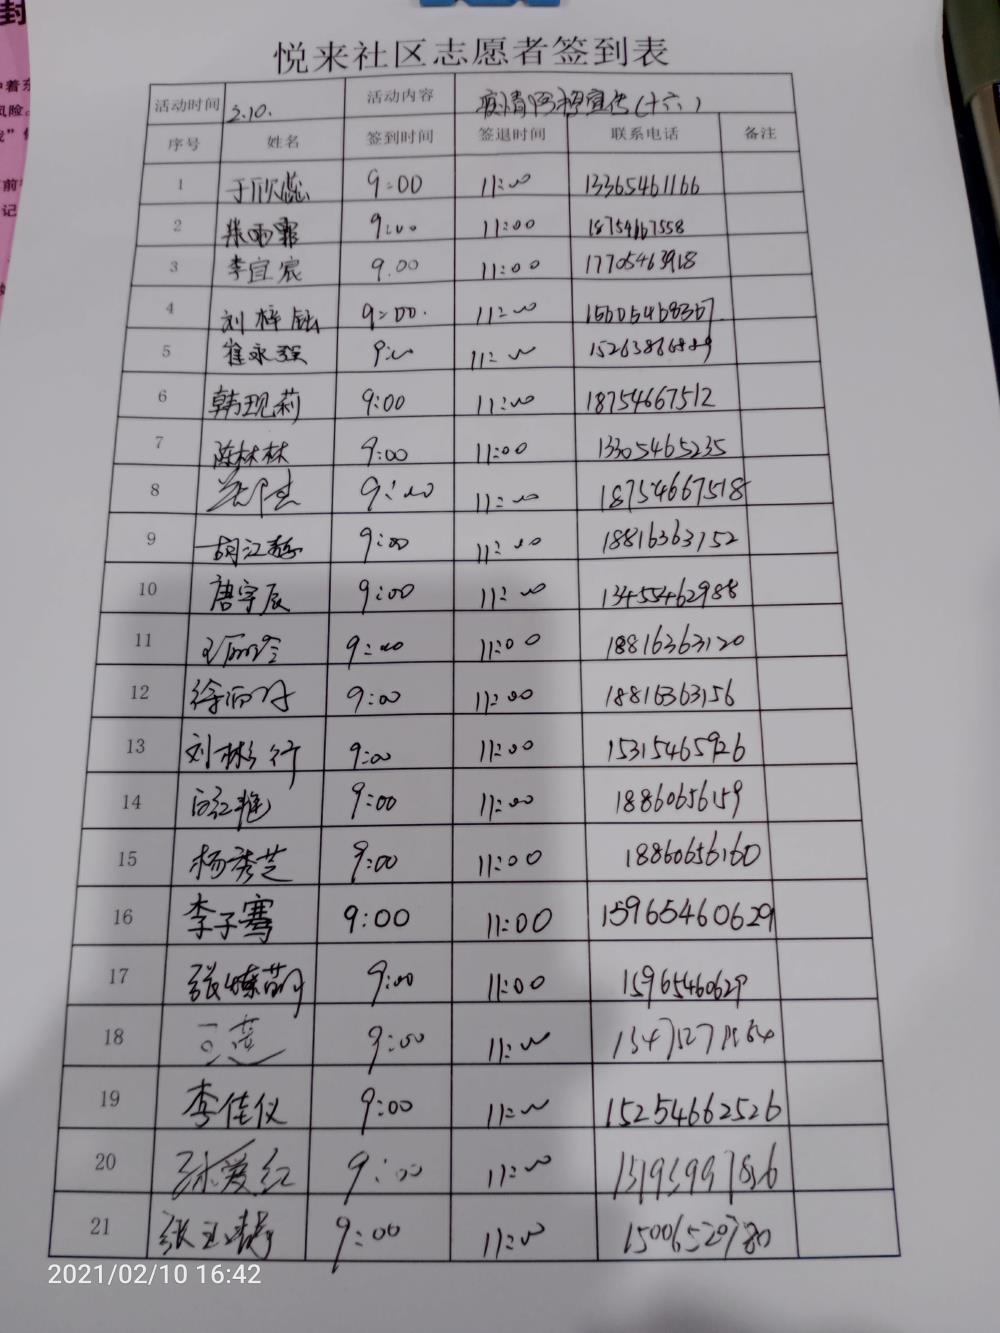 封
悦来社区志愿者签到表
活动时间 2.10. 活动内容 疫情防控宣传(十六)
序号 姓名 签到时间 签退时间 联系电话 备注
1 于欣蕊 9:00 11:00 13365461166
2 朱雨霏 9:00 11:00 18754667558
3 李宜宸 9:00 11:00 17705463918
4 刘梓 9:00. 11:00
5 崔永强 9:00 11:00
6 韩现莉 9:00 11:00 18754667512
7 陈林林 9:00 11:00 13305465235
8 9:00 11:00 18754667518
9 胡江 9:00 11:00 18816363152
10 唐宇辰 9:00 11:00 13455462988
11 9:00 11:00 18816363120
12 徐 9:00 11:00 18816363156
13 刘彬行 9:00 11:00 15315465926
14 红艳 9:00 11:00 18860656159
15 杨秀芝 9:00 11:00 18860656160
16 李子骞 9:00 11:00 15965460629
17 张 9:00 11:00 15965460629
18 9:00 11:00
19 李佳仪 9:00 11:00 15254662526
20 孙爱红 9:00 11:00
21 张玉 9:00 11:00 15006529780
2021/02/10 16:42